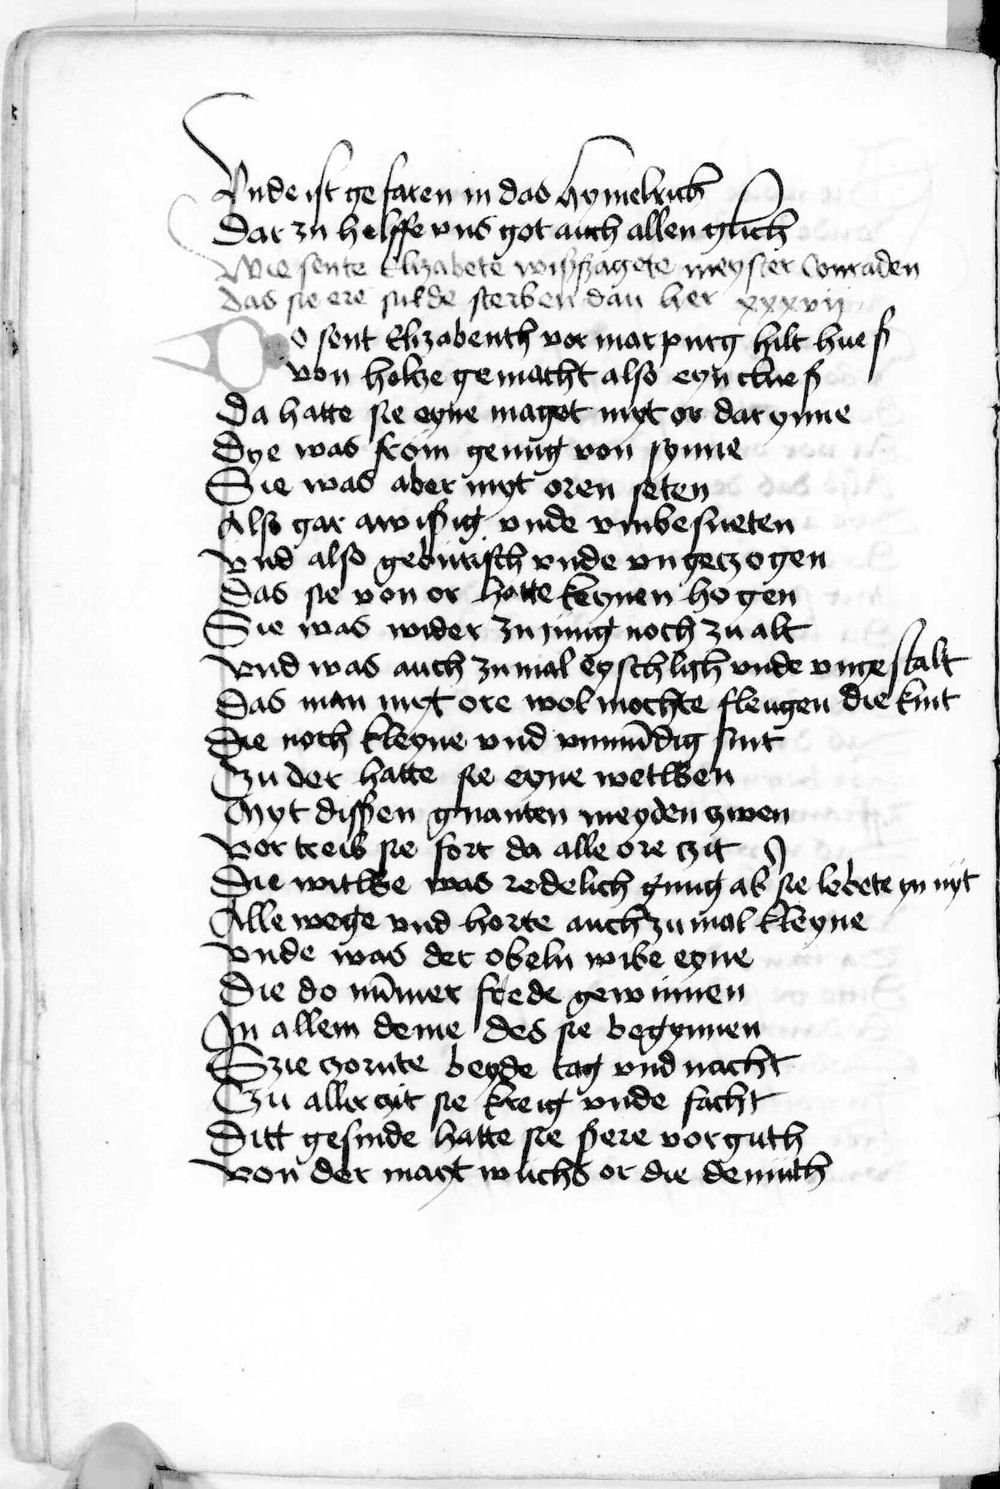 Vnde ist gefaren in das hymelrich
Dar zu helffe vns got auch allen glich
Wie sente Elizabete wissagete meyster Conraden
das sie ere sulde sterben dan her xxxvij
Do sent Elizabenth vor marpurg hilt hues
von holtze gemacht also eyn clues
Da hatte sie eyne maget myt or darynne
Dye was from genug von synne
Sie was aber myt oren seten
Also gar awisig vnde vmbesneten
vnd also geburisch vnde vngeczogen
Das sie von or hatte keynen hogen
Sie was wider zu jung noch zu alt
vnd was auch zu mal eyschlich vnde vngestalt
Das man myt ore wol mochte fleugen die kint
Die noch kleyne vnd vnmūdig sint
Czu der hatte sie eyne wetwen
Myt dissen gnanten meyden zwen
vortreib sie fort da alle ore czit
Die witwe was redelich gnug ab sie lebete yn nyt
Alle wege vnd horte auch zu mal kleyne
vnde was der obeln wibe eyne
Die do nūmer frede gewinnen
In allem deme des sie begynnen
Szie czornte beyde tag vnd nacht
Czu aller cyit sie kreig vnde facht
Ditt gesinde hatte sie sere vor guth
von der mayt wuchs or die demuth